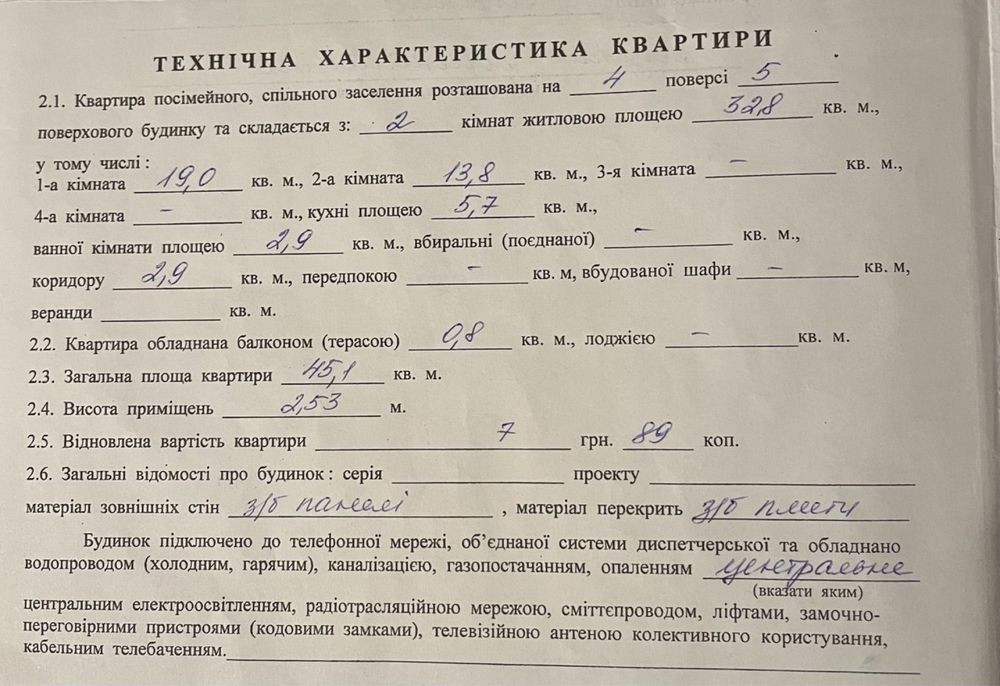 ТЕХНІЧНА ХАРАКТЕРИСТИКА КВАРТИРИ
2.1. Квартира посімейного, спільного заселення розташована на 4 поверсі 5
поверхового будинку та складається з: 2 кімнат житловою площею 32,8 кв. м.,
у тому числі :
1-а кімната 19,0 кв. м., 2-а кімната 13,8 кв. м., 3-я кімната – кв. м.,
4-а кімната – кв. м., кухні площею 5,7 кв. м.,
ванної кімнати площею 2,9 кв. м., вбиральні (поєднаної) – кв. м.,
коридору 2,9 кв. м., передпокою – кв. м, вбудованої шафи – кв. м,
веранди кв. м.
2.2. Квартира обладнана балконом (терасою) 0,8 кв. м., лоджією – кв. м.
2.3. Загальна площа квартири 45,1 кв. м.
2.4. Висота приміщень 2,53 м.
2.5. Відновлена вартість квартири 7 грн. 89 коп.
2.6. Загальні відомості про будинок : серія проекту
матеріал зовнішніх стін з/б панелі , матеріал перекрить з/б плити
Будинок підключено до телефонної мережі, об’єднаної системи диспетчерської та обладнано
водопроводом (холодним, гарячим), каналізацією, газопостачанням, опаленням центральне
(вказати яким)
центральним електроосвітленням, радіотрасляційною мережою, сміттєпроводом, ліфтами, замочно-
переговірними пристроями (кодовими замками), телевізійною антеною колективного користування,
кабельним телебаченням.